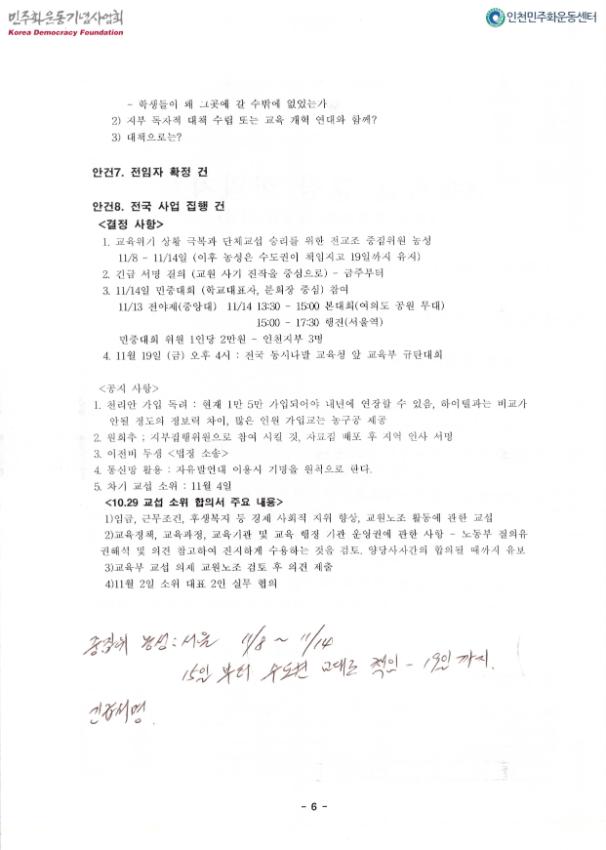 민주화운동기념사업회
Korea Democracy Foundation
인천민주화운동센터
- 학생들이 왜 그곳에 갈 수밖에 없었는가
2) 지부 독자적 대책 수립 또는 교육 개혁 연대와 함께?
3) 대책으로는?
안건7. 전임자 확정 건
안건8. 전국 사업 집행 건
<결정 사항>
1. 교육위기 상황 극복과 단체교섭 승리를 위한 전교조 중집위원 농성
11/8 - 11/14일 (이후 농성은 수도권이 책임지고 19일까지 유지)
2. 긴급 서명 결의 (교원 사기 진작을 중심으로) - 금주부터
3. 11/14일 민중대회 (학교대표자, 분회장 중심) 참여
11/13 전야제(중앙대) 11/14 13:30 - 15:00 본대회(여의도 공원 무대)
15:00 - 17:30 행진(서울역)
민중대회 위원 1인당 2만원 - 인천지부 3명
4. 11월 19일 (금) 오후 4시 : 전국 동시다발 교육청 앞 교육부 규탄대회
<공지 사항>
1. 천리안 가입 독려 : 현재 1만 5만 가입되어야 내년에 연장할 수 있음, 하이텔과는 비교가
안될 정도의 정보력 차이, 많은 인원 가입교는 농구공 제공
2. 원회추 ; 지부집행위원으로 참여 시킬 것, 자료집 배포 후 지역 인사 서명
3. 이전비 투쟁 <법정 소송>
4. 통신망 활용 : 자유발언대 이용시 기명을 원칙으로 한다.
5. 차기 교섭 소위 : 11월 4일
<10.29 교섭 소위 합의서 주요 내용>
1)임금, 근무조건, 후생복지 등 경제 사회적 지위 향상, 교원노조 활동에 관한 교섭
2)교육정책, 교육과정, 교육기관 및 교육 행정 기관 운영권에 관한 사항 - 노동부 질의유
권해석 및 의견 참고하여 진지하게 수용하는 것을 검토. 양당사자간의 합의될 때까지 유보
3)교육부 교섭 의제 교원노조 검토 후 의견 제출
4)11월 2일 소위 대표 2인 실무 협의
중집위 농성 : 서울 11/8 ~ 11/14
15일 부터 수도권 교대로 책임 - 19일 까지.
긴급서명.
- 6 -